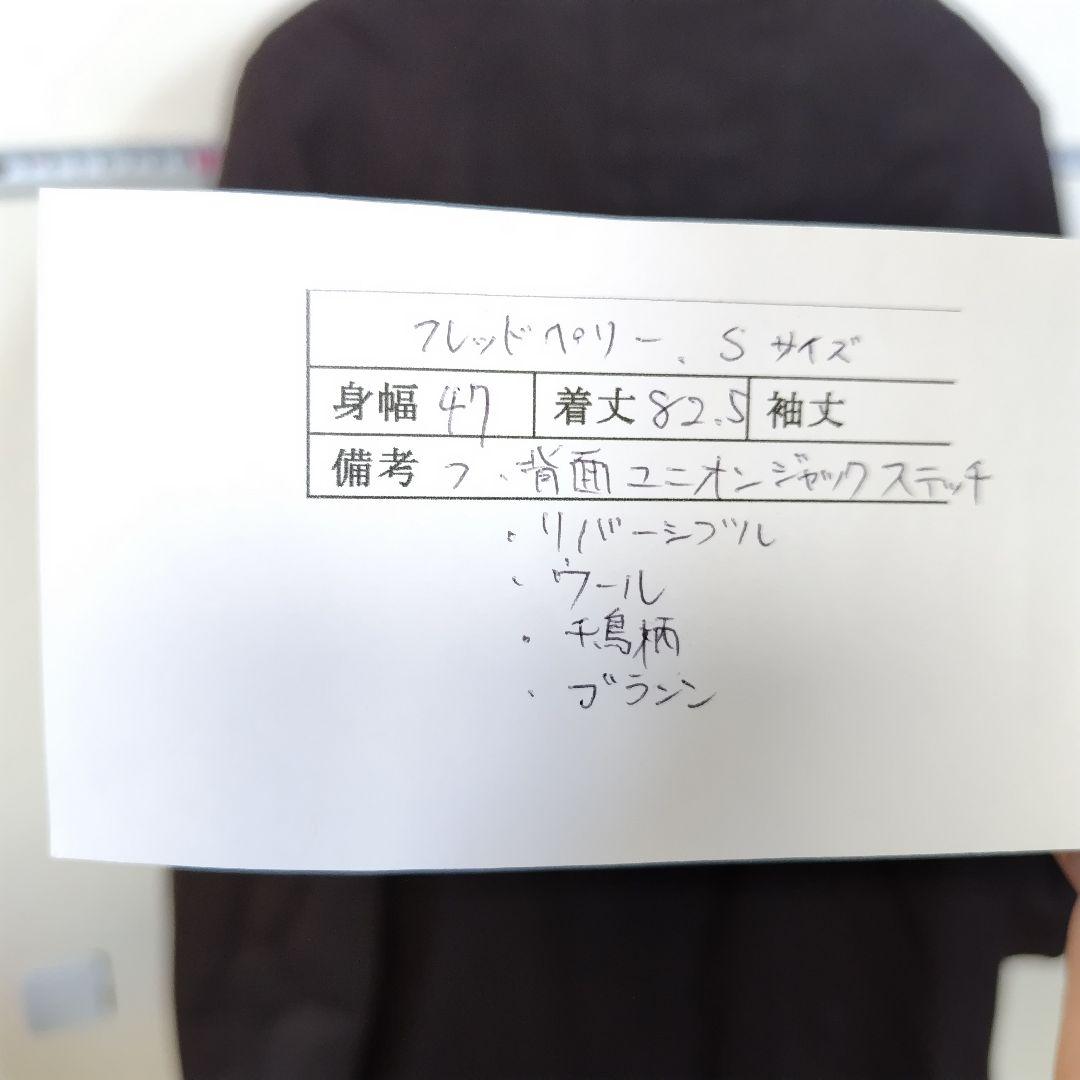 フレッドペリー、S サイズ
身幅 47 着丈 82.5 袖丈
備考 フ ・背面ユニオンジャックステッチ
・リバーシブル
・ウール
・千鳥柄
・ブランン